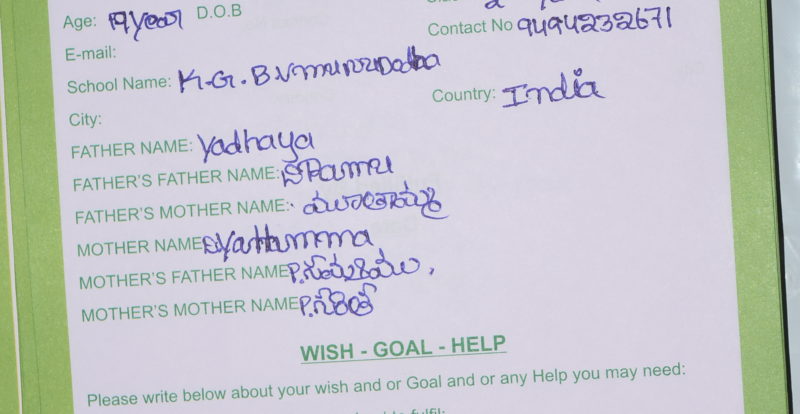 Age: 19 year D.O.B
Contact No 9494232671
E-mail:
School Name: K.G.B.V
City: Country: India
FATHER NAME: Yadhaya
FATHER'S FATHER NAME: Ramu
FATHER'S MOTHER NAME:
MOTHER NAME Yattumma
MOTHER'S FATHER NAME P.
MOTHER'S MOTHER NAME P.
WISH - GOAL - HELP
Please write below about your wish and or Goal and or any Help you may need: